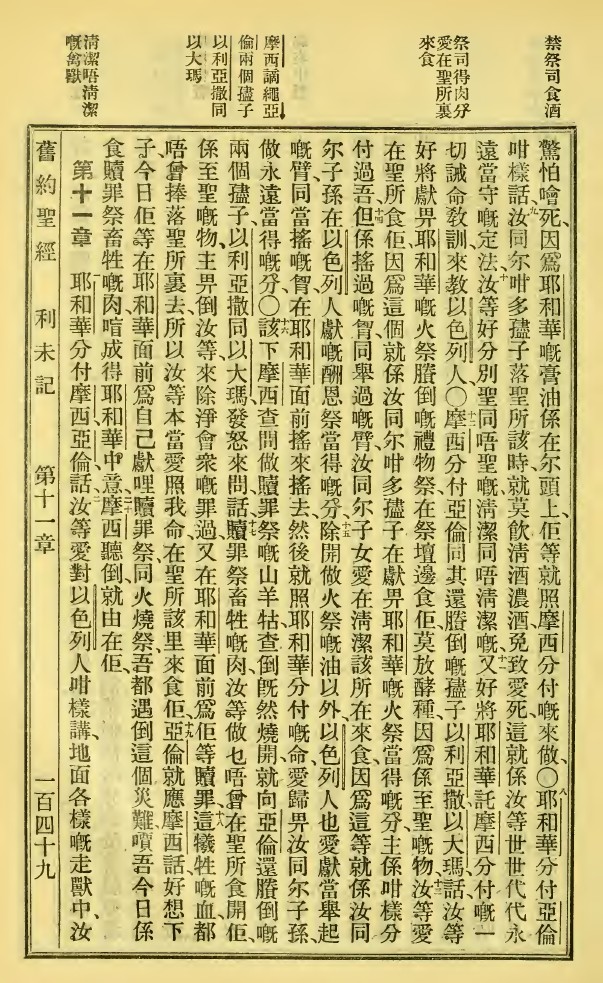 禁祭司食酒
祭司得肉分
愛在聖所裏
來食
摩西謫繩亞
倫兩個孻子
以利亞撒同
以大瑪
清潔唔清潔
嘅禽獸
驚怕噲死、因爲耶和華嘅膏油係在尔頭上、佢等就照摩西分付嘅來做、〇八耶和華分付亞倫
咁樣話、九汝同尔咁多孻子落聖所該時就莫飲清酒濃酒、免致愛死、這就係汝等世世代代永
遠當守嘅定法、十汝等好分別聖同唔聖嘅、清潔同唔清潔嘅、十一又好將耶和華託摩西分付嘅一
切誡命敎訓來教以色列人、〇十二摩西分付亞倫同其還賸倒嘅孻子以利亞撒以大瑪話、汝等
好將獻畀耶和華嘅火祭賸倒嘅禮物祭在祭壇邊食佢、莫放酵種、因爲係至聖嘅物、十三汝等愛
在聖所食佢、因爲這個就係汝同尔咁多孻子在獻畀耶和華嘅火祭當得嘅分、主係咁樣分
付過吾、十四但係搖過嘅胷同舉過嘅臂、汝同尔子女愛在清潔該所在來食、因爲這等就係汝同
尔子孫在以色列人獻嘅酬恩祭當得嘅分、十五除開做火祭嘅油以外、以色列人也愛獻當舉起
嘅臂、同當搖嘅胷、在耶和華面前搖來搖去、然後就照耶和華分付嘅命、愛歸畀汝同尔子孫、
做永遠當得嘅分、〇十六該下摩西查問做贖罪祭嘅山羊牯、查倒旣然燒開、就向亞倫還賸倒嘅
兩個孻子、以利亞撒同以大瑪發怒來問話、十七贖罪祭畜牲嘅肉、汝等做乜唔曾在聖所食開佢、
係至聖嘅物、主畀倒汝等來除淨會衆嘅罪過、又在耶和華面前爲佢等贖罪、十八這犧牲嘅血都
唔曾捧落聖所裏去、所以汝等本當愛照我命在聖所該里來食佢、十九亞倫就應摩西話、好想下
子、今日佢等在耶和華面前爲自己獻哩贖罪祭、同火燒祭、吾都遇倒這個災難、嘪吾今日係
食贖罪祭畜牲嘅肉、啱成得耶和華中意、二十摩西聽倒就由在佢、
第十一章　耶和華分付摩西亞倫話、二汝等愛對以色列人咁樣講、地面各樣嘅走獸中、汝
舊約聖經　利未記　第十一章　一百四十九